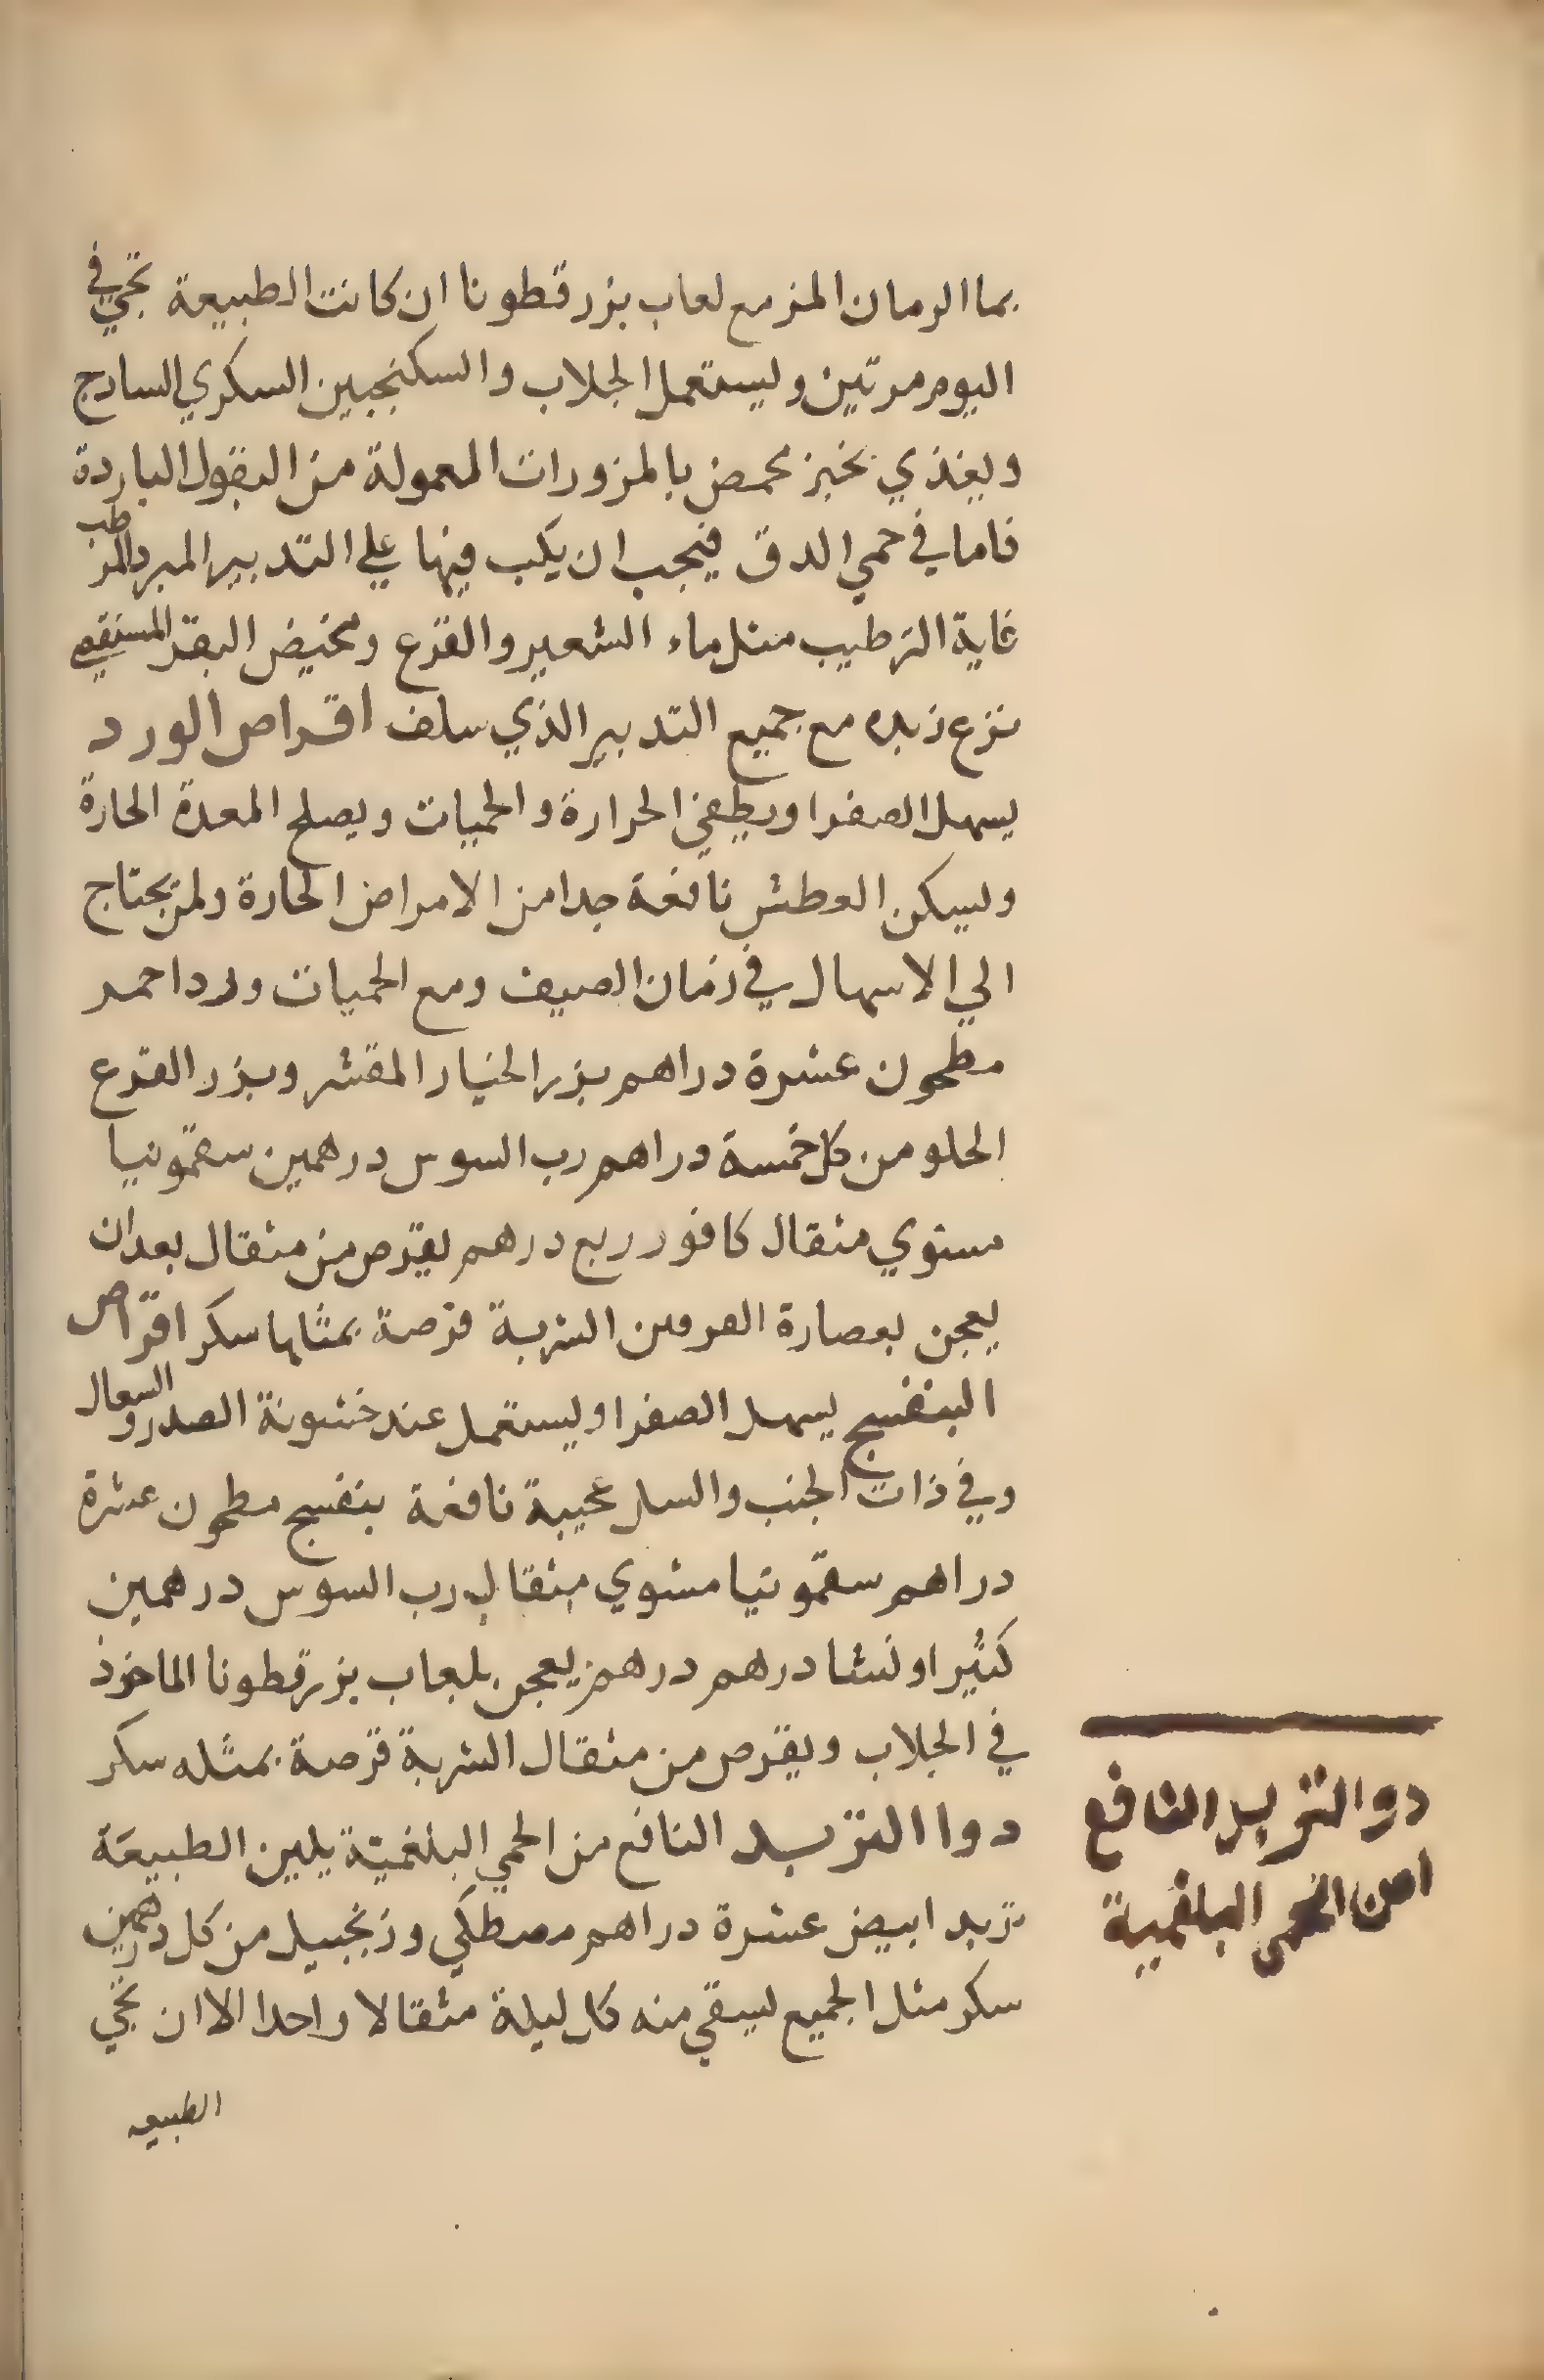 بما الرمان المز مع لعاب بزر قطونا ان كانت الطبيعة تجي في
اليوم مرتين ويستعمل الجلاب والسكنجبين السكري السادج
ويغذي بخبز محمض بالمزورات المعمولة من البقول الباردة
فاما في حمي الدق فيجب ان يكب فيها علي التدبير المبرد المرطب
غاية الترطيب مثل ماء الشعير والقرع ومخيض البقر المستقصي
نزع زبده مع جميع التدبير الذي سلف اقراص الورد
يسهل الصفرا ويطفي الحرارة والحميات ويصلح المعدة الحارة
ويسكن العطش نافعة جدا من الامراض الحارة ولمن يحتاج
الي الاسهال في زمان الصيف ومع الحميات ورد احمر
مطحون عشرة دراهم بزر الخيار المقشر وبزر القرع
الحلو من كل خمسة دراهم رب السوس درهمين سقمونيا
مشوي مثقال كافور ربع درهم يقرص من مثقال بعد ان
يعجن بعصارة الشربة قرصة بمثلها سكر اقراص
البنفسج يسهل الصفرا ويستعمل عند خشونة الصدر والسعال
وفي ذات الجنب والسل عجيبة نافعة بنفسج مطحون عشرة
دراهم سقمونيا مشوي مثقال رب السوس درهمين
كثيرا ونشا درهم درهم يعجن بلعاب بزر قطونا الماخوذ
في الجلاب ويقرص من مثقال الشربة قرصة بمثله سكر
دوا التربد النافع من الحمي البلغمية يلين الطبيعة
تربد ابيض عشرة دراهم مصطكي وزنجبيل من كل درهمين
سكر مثل الجميع يسقي منه كل ليلة مثقالا واحدا الا ان تجي
الطبيعه
دوا التربد النافع
من الحمى البلغمية